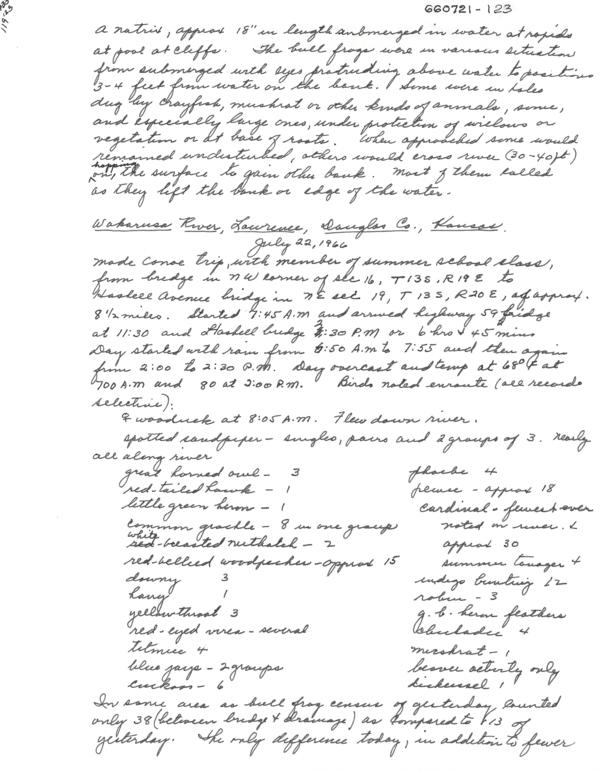 660721-123
119-23
A natrix, approx 18" in length submerged in water at rapids
at pool at cliffs. The bull frogs were in various situation
from submerged with eyes protruding above water to positions
3-4 feet from water on the bank. Some were in holes
dug by crayfish, muskrat or other kinds of animals, some,
and especially large ones, under protection of willows or
vegetation or at base of roots. When approached some would
remained undisturbed, others would cross river (30-40ft)
hopping
on the surface to gain other bank. Most of them called
as they lift the bank or edge of the water.
Wakarusa River, Lawrence, Douglas Co., Kansas.
July 22, 1966
Made canoe trip, with member of summer school class,
from bridge in NW corner of sec 16, T13S, R19E to
Haskell Avenue bridge in NE sec 19, T13S, R20E, of approx.
8 1/2 miles. Started 7:45 A.M and arrived highway 59 bridge
at 11:30 and Haskell bridge 2:30 P.M or 6 hrs & 45 mins
Day started with rain from 6:50 A.M to 7:55 and then again
from 2:00 to 2:30 P.M. Day overcast and temp at 68° F at
700 A.M and 80 at 2:00 P.M. Birds noted enroute (all records
selective):
♀ woodduck at 8:05 A.M. Flew down river.
spotted sandpiper - singles, pairs and 2 groups of 3. nearly
all along river
great horned owl - 3
red-tailed hawk - 1
little green heron - 1
common grackle - 8 in one group
white
red-breasted nuthatch - 2
red-bellied woodpecker - approx 15
downy 3
hairy 1
yellowthroat 3
red-eyed vireo - several
titmice 4
blue jays - 2 groups
cuckoos - 6
phoebe 4
pewee - approx 18
cardinal - fewest ever
noted on river.
approx 30
summer tanager 4
indigo bunting 12
robin - 3
g. b. heron feathers
chickadee 4
muskrat - 1
beaver activity only
dickcissel 1
In same area as bull frog census of yesterday counted
only 38 (between bridge & drainage) as compared to 113 of
yesterday. The only difference today, in addition to fewer